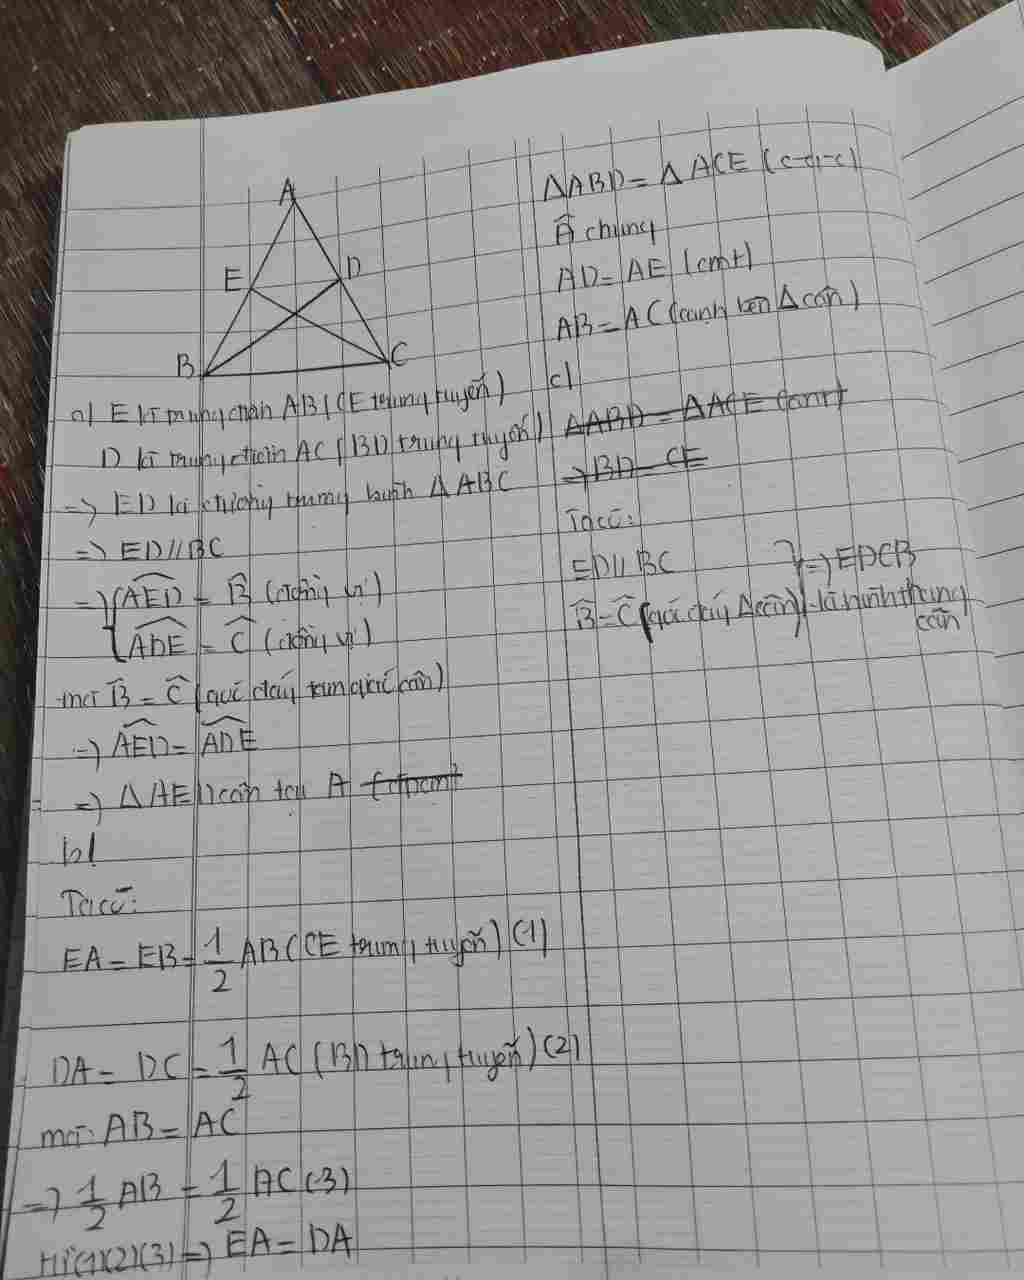 A
E
D
B
C
a) E là trung điểm AB (CE trung tuyến)
D là trung điểm AC (BD trung tuyến)
=> ED là đường trung bình ΔABC
=> ED // BC
=> { \widehat{AED} = \widehat{B} (đồng vị)
\widehat{ADE} = \widehat{C} (đồng vị)
mà \widehat{B} = \widehat{C} (góc đáy tam giác cân)
=> \widehat{AED} = \widehat{ADE}
=> ΔAED cân tại A
b)
Ta có:
EA = EB = 1/2 AB (CE trung tuyến) (1)
DA = DC = 1/2 AC (BD trung tuyến) (2)
mà AB = AC
=> 1/2 AB = 1/2 AC (3)
Từ (1)(2)(3) => EA = DA
ΔABD = ΔACE (c-g-c)
\widehat{A} chung
AD = AE (cmt)
AB = AC (cạnh bên Δ cân)
c)
ΔABD = ΔACE (cmt)
=> BD = CE
Ta có:
ED // BC } => EDCB
\widehat{B} = \widehat{C} (góc đáy Δcân) là hình thang
cân